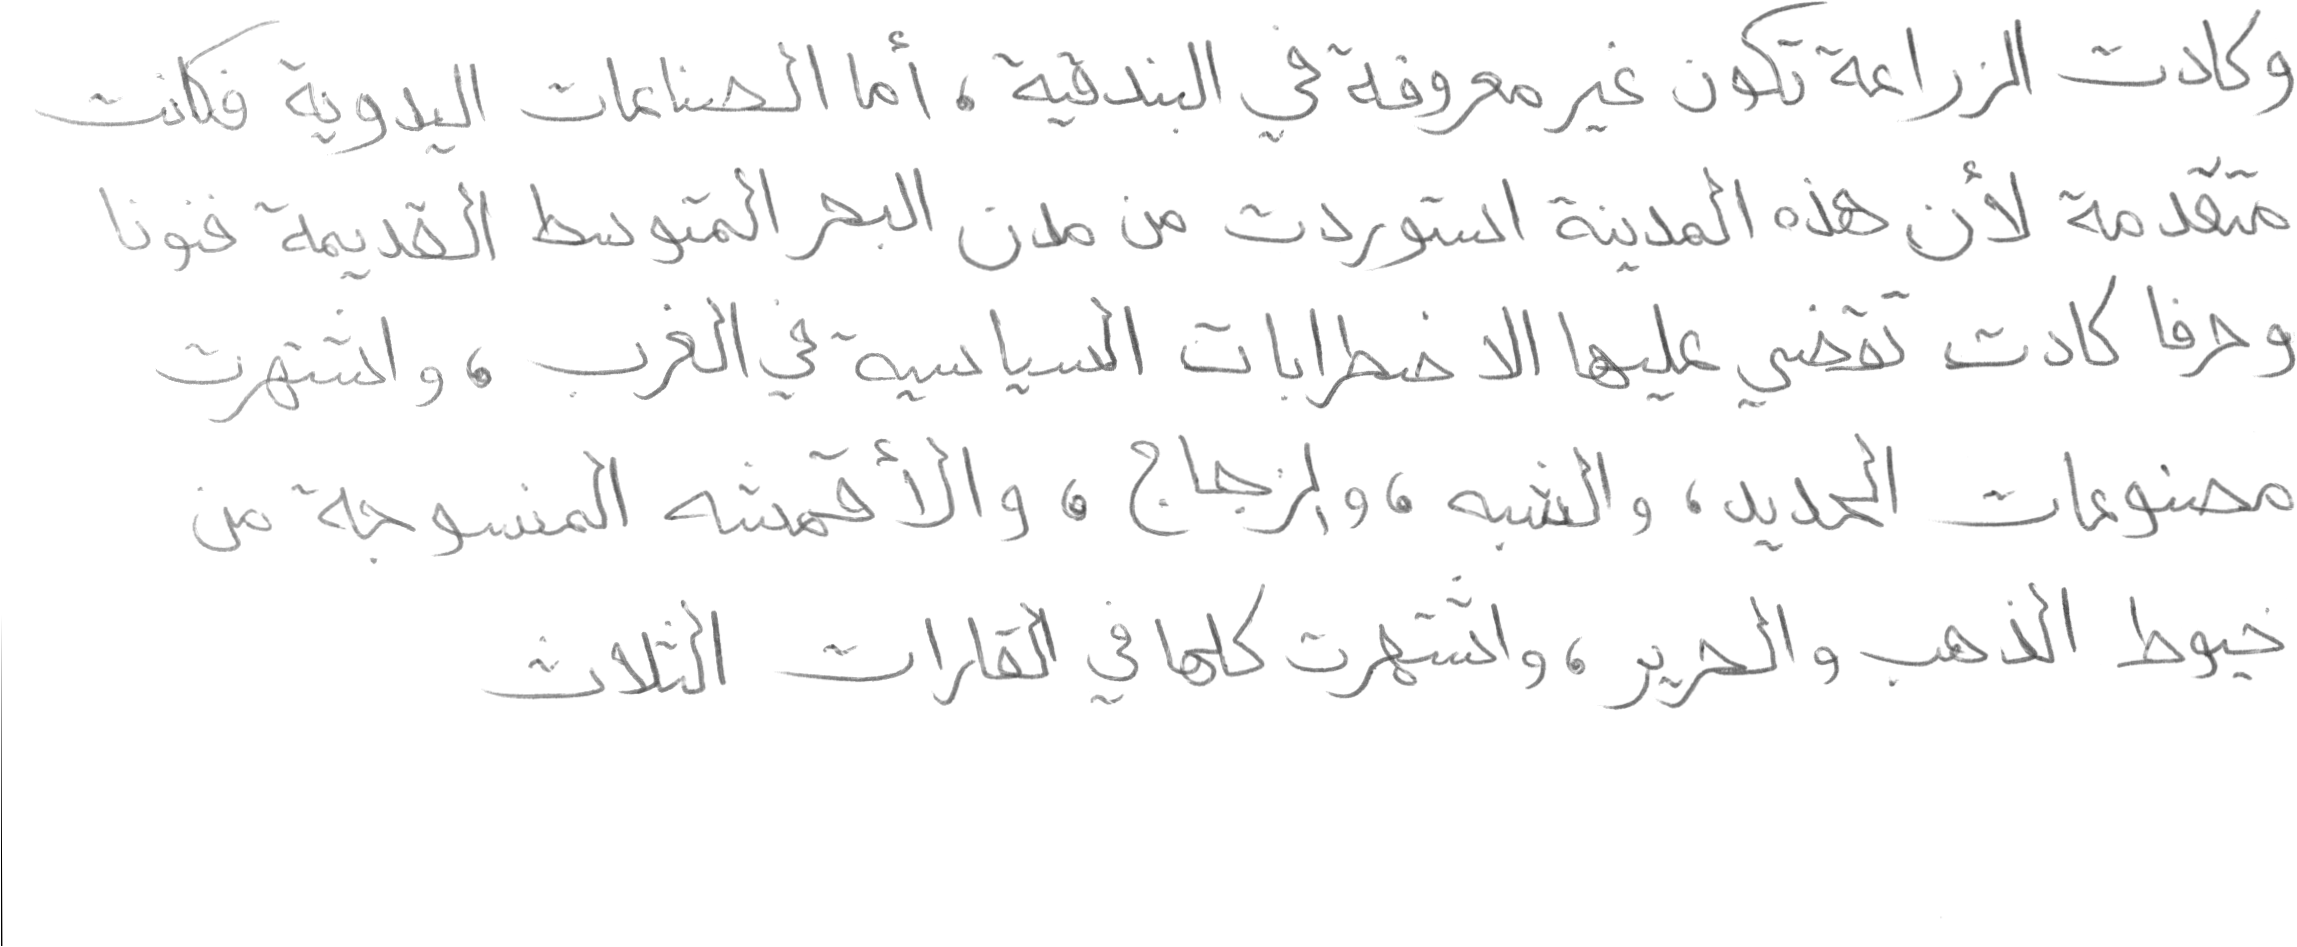 وكادت الزراعة تكون غير معروفة في البندقية ، أما الصناعات اليدوية فكانت
متقدمة لأن هذه المدينة استوردت من مدن البحر المتوسط القديمة فنونا
وحرفا كادت تقضي عليها الاضطرابات السياسية في الغرب ، واشتهرت
مصنوعات الحديد ، والشبه ، والزجاج ، والأقمشه المنسوجة من
خيوط الذهب والحرير ، واشتهرت كلها في القارات الثلاث